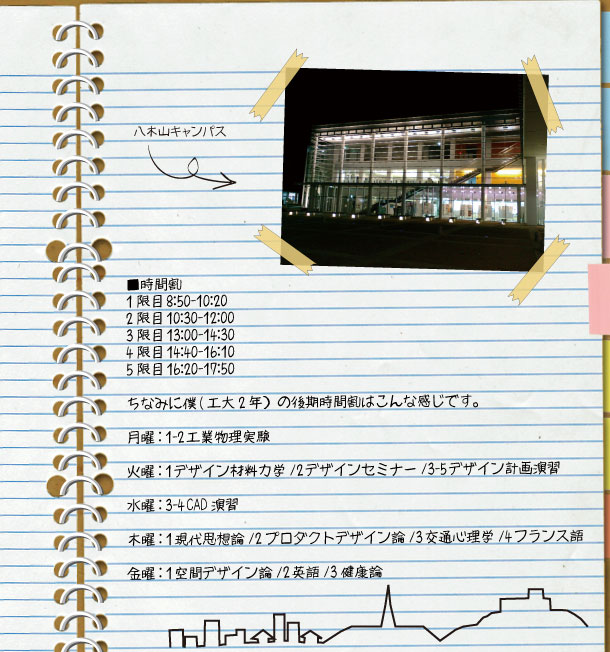 八木山キャンパス
■時間割
1限目8:50-10:20
2限目10:30-12:00
3限目13:00-14:30
4限目14:40-16:10
5限目16:20-17:50
ちなみに僕(工大2年)の後期時間割はこんな感じです。
月曜:1-2工業物理実験
火曜:1デザイン材料力学/2デザインセミナー/3-5デザイン計画演習
水曜:3-4CAD演習
木曜:1現代思想論/2プロダクトデザイン論/3交通心理学/4フランス語
金曜:1空間デザイン論/2英語/3健康論